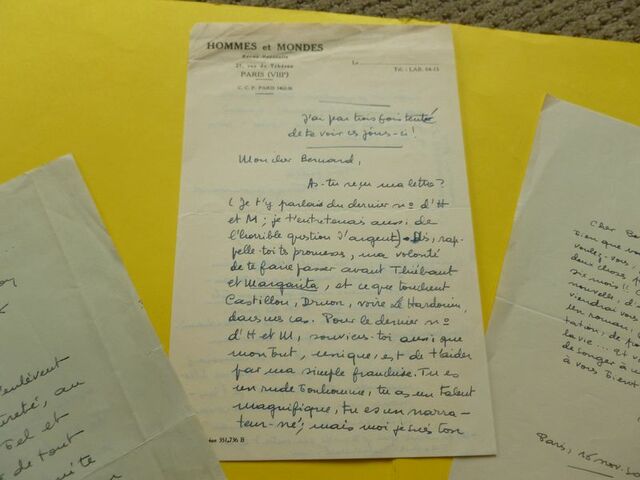 HOMMES et MONDES
Revue Mensuelle
21, rue de Téhéran
PARIS (VIIIe)
C. C. P. PARIS
Le
Tél. : LAB.
J'ai par trois fois tenté
de te voir ces jours-ci !
Mon cher Bernard,
As-tu reçu ma lettre ?
(Je t'y parlais du dernier no d'H
et M ; je t'entretenais aussi de
l'horrible question d'argent).
pelle-toi promesse, ma volonté
de te faire passer avant Thiébaut
et Margarita, et ce que touchent
Castillon, Druon, voire Le Hardouin,
dans ces cas. Pour le dernier no
d'H et M, souviens-toi aussi que
mon tout, unique, est de t'aider
par ma simple franchise. Tu es
un rude bonhomme, tu as un talent
magnifique, tu es un narra-
teur-né ; mais moi je suis ton
351,236 B
enlèvent
reté, au
Tel et
de tout
Cher
Bien que vo
voulez-vous
deux choses
six mois !!
nouvelle, d'a
viendrai vous
un roman,
tation, de
la vie.
de songer à
à vous
Paris, 16 nov.